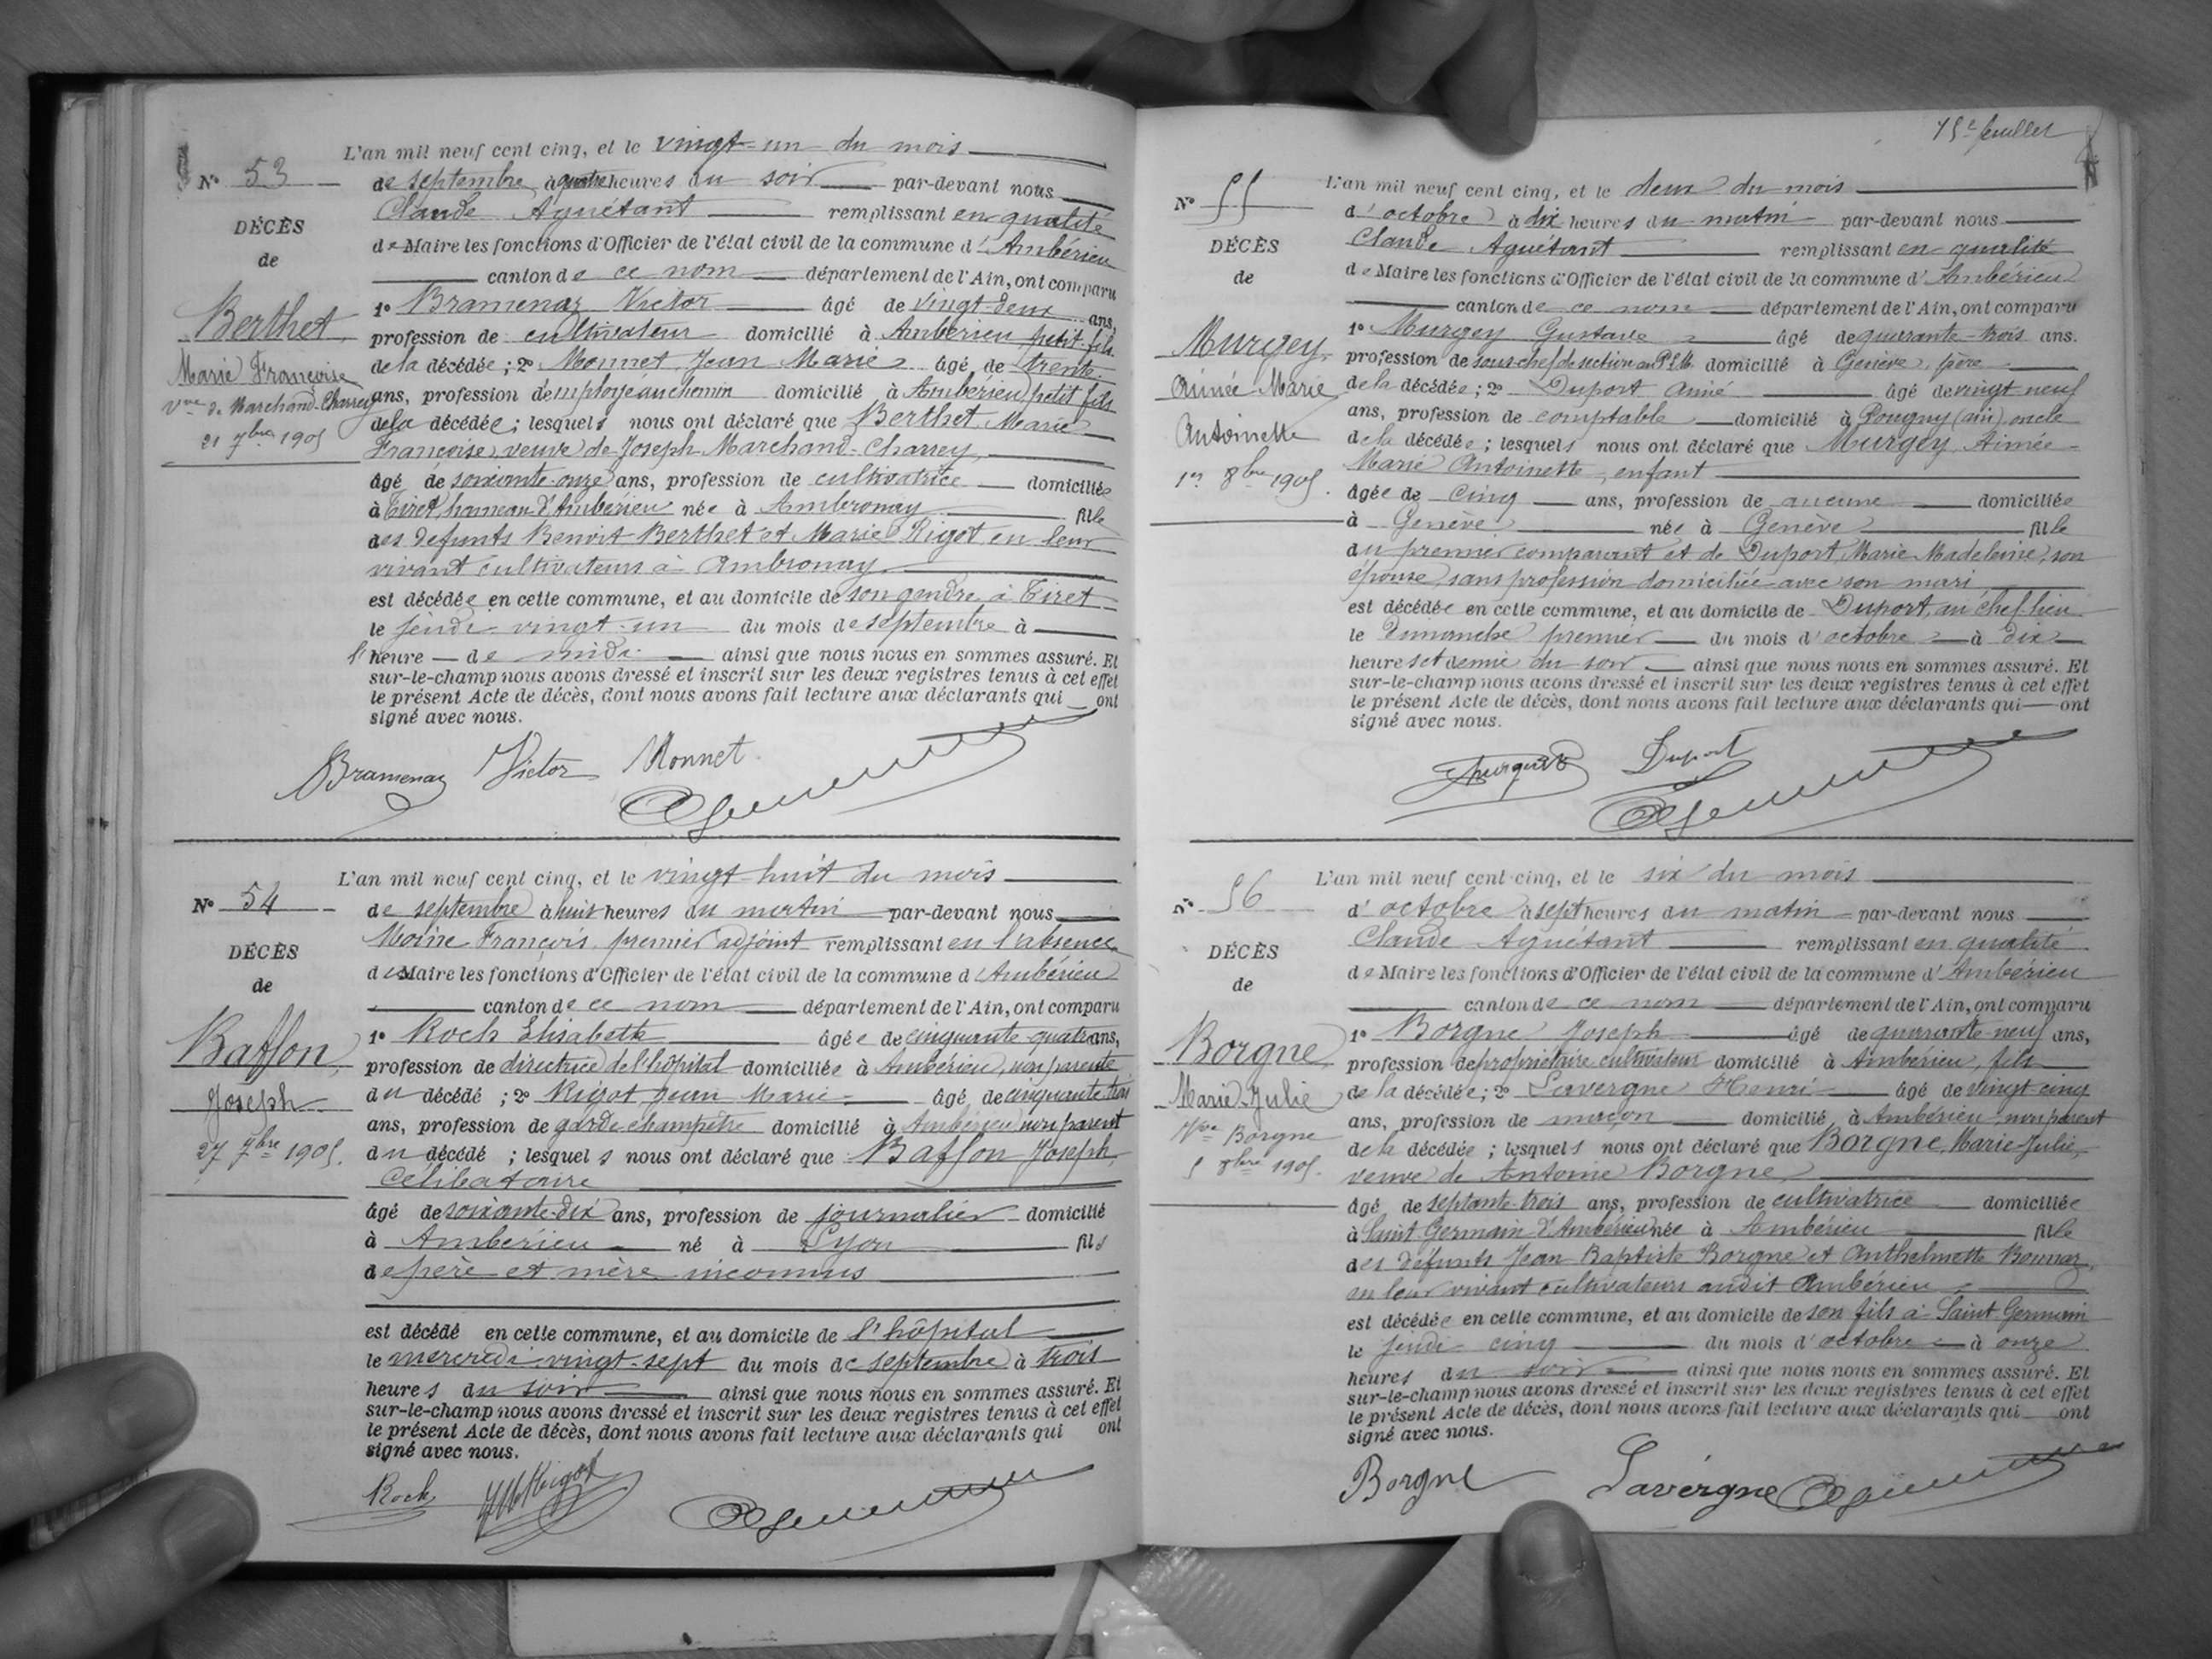 L'an mil neuf cent cinq, et le vingt-un du mois
N° 53
de septembre à quatre heures du soir par-devant nous
Claude Aguétant remplissant en qualité
DÉCÈS
de Maire les fonctions d'Officier de l'état civil de la commune d'Ambérieu
de
canton de ce nom département de l'Ain, ont comparu
Berthet
1° Bramenaz Victor âgé de vingt-deux ans,
profession de cultivateur domicilié à Ambérieu petit-fils
Marie Françoise
de la décédée ; 2° Monnet Jean Marie âgé de trente
Vve de Marchand-Charrey
ans, profession d'employé au chemin domicilié à Ambérieu petit fils
21 7bre 1905
de la décédée ; lesquels nous ont déclaré que Berthet Marie
Françoise, veuve de Joseph Marchand-Charrey,
âgé de soixante-onze ans, profession de cultivatrice domiciliée
à Tiret, hameau d'Ambérieu née à Ambronay fille
des défunts Benoit Berthet et Marie Rigot en leur
vivant cultivateurs à Ambronay
est décédée en cette commune, et au domicile de son gendre à Tiret
le jeudi vingt-un du mois de septembre à
l'heure de midi ainsi que nous nous en sommes assuré. Et
sur-le-champ nous avons dressé et inscrit sur les deux registres tenus à cet effet
le présent Acte de décès, dont nous avons fait lecture aux déclarants qui ont
signé avec nous.
Bramenaz Victor Monnet
L'an mil neuf cent cinq, et le vingt-huit du mois
N° 54
de septembre à huit heures du matin par-devant nous
Moine François, premier adjoint remplissant en l'absence
DÉCÈS
de Maire les fonctions d'Officier de l'état civil de la commune d'Ambérieu
de
canton de ce nom département de l'Ain, ont comparu
Baffon,
1° Roch Elisabeth âgée de cinquante quatre ans,
profession de directrice de l'hôpital domiciliée à Ambérieu, non parente
Joseph
du décédé ; 2° Rigot Jean Marie âgé de cinquante trois
ans, profession de garde champêtre domicilié à Ambérieu non parent
27 7bre 1905.
du décédé ; lesquels nous ont déclaré que Baffon Joseph,
Célibataire
âgé de soixante-dix ans, profession de journalier domicilié
à Ambérieu né à Lyon fils
de père et mère inconnus
est décédé en cette commune, et au domicile de l'hôpital
le mercredi vingt-sept du mois de septembre à trois
heures du soir ainsi que nous nous en sommes assuré. Et
sur-le-champ nous avons dressé et inscrit sur les deux registres tenus à cet effet
le présent Acte de décès, dont nous avons fait lecture aux déclarants qui ont
signé avec nous.
Roch JM Rigot
15e feuillet
L'an mil neuf cent cinq, et le deux du mois
N° 55
d'octobre à dix heures du matin par-devant nous
Claude Aguétant remplissant en qualité
DÉCÈS
de Maire les fonctions d'Officier de l'état civil de la commune d'Ambérieu
de
canton de ce nom département de l'Ain, ont comparu
Murgey,
1° Murgey Gustave âgé de quarante-trois ans.
profession de sous chef de section au P.L.M. domicilié à Genève, père
Aimée Marie
de la décédée ; 2° Duport Aimé âgé de vingt neuf
ans, profession de comptable domicilié à Pougny (ain) oncle
Antoinette
de la décédée ; lesquels nous ont déclaré que Murgey Aimée
Marie Antoinette, enfant
1er 8bre 1905.
âgée de cinq ans, profession de aucune domiciliée
à Genève née à Genève fille
du premier comparant et de Duport, Marie Madeleine, son
épouse, sans profession domiciliée avec son mari
est décédée en cette commune, et au domicile de Duport, au chef-lieu
le dimanche premier du mois d'octobre à dix
heures et demie du soir ainsi que nous nous en sommes assuré. Et
sur-le-champ nous avons dressé et inscrit sur les deux registres tenus à cet effet
le présent Acte de décès, dont nous avons fait lecture aux déclarants qui ont
signé avec nous.
Duport
L'an mil neuf cent cinq, et le six du mois
N° 56
d'octobre à sept heures du matin par-devant nous
Claude Aguétant remplissant en qualité
DÉCÈS
de Maire les fonctions d'Officier de l'état civil de la commune d'Ambérieu
de
canton de ce nom département de l'Ain, ont comparu
Borgne,
1° Borgne Joseph âgé de quarante-neuf ans,
profession de propriétaire cultivateur domicilié à Ambérieu, fils
Marie-Julie
de la décédée ; 2° Lavergne Henri âgé de vingt cinq
ans, profession de maçon domicilié à Ambérieu, non parent
Vve Borgne
de la décédée ; lesquels nous ont déclaré que Borgne, Marie-Julie,
5 8bre 1905.
veuve de Antoine Borgne
âgé de septante-trois ans, profession de cultivatrice domiciliée
à Saint Germain d'Ambérieu née à Ambérieu fille
des défunts Jean Baptiste Borgne et Anthelmette
en leur vivant cultivateurs audit Ambérieu
est décédée en cette commune, et au domicile de son fils à Saint Germain
le jeudi cinq du mois d'octobre à onze
heures du soir ainsi que nous nous en sommes assuré. Et
sur-le-champ nous avons dressé et inscrit sur les deux registres tenus à cet effet
le présent Acte de décès, dont nous avons fait lecture aux déclarants qui ont
signé avec nous.
Borgne Lavergne